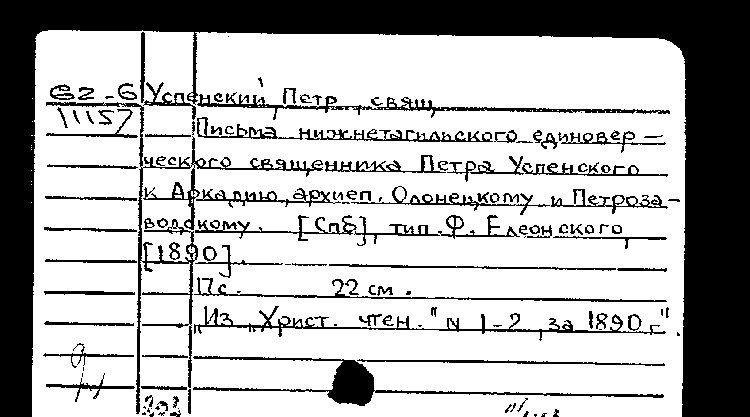 62-6 Успенский, Петр, свящ.
11157
Письма нижнетагильского единовер-
ческого священника Петра Успенского
к Аркадию, архиеп. Олонецкому и Петроза-
водскому. [Спб], тип. Ф. Елеонского,
[1890].
17с. 22 см.
"Из „Христ. чтен." N 1-2, за 1890 г".